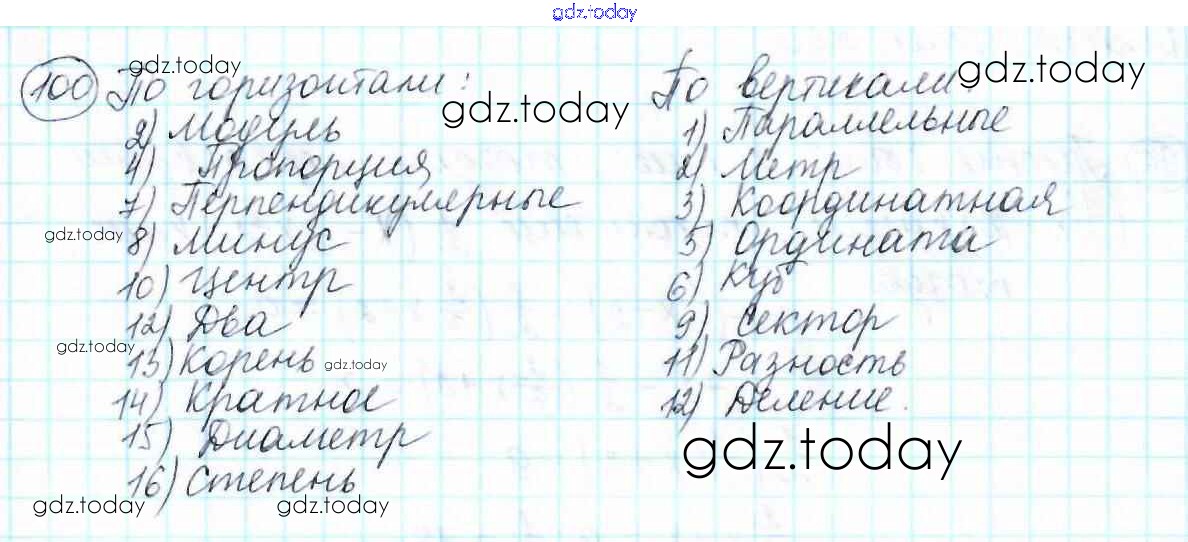 gdz.today
100 По горизонтали:
2) Модуль
4) Пропорция
7) Перпендикулярные
8) Минус
10) Центр
12) Два
13) Корень
14) Кратное
15) Диаметр
16) Степень
По вертикали:
1) Параллельные
2) Метр
3) Координатная
5) Ордината
6) Куб
9) Сектор
11) Разность
12) Деление.
gdz.today
gdz.today
gdz.today
gdz.today
gdz.today
gdz.today
gdz.today
gdz.today
gdz.today